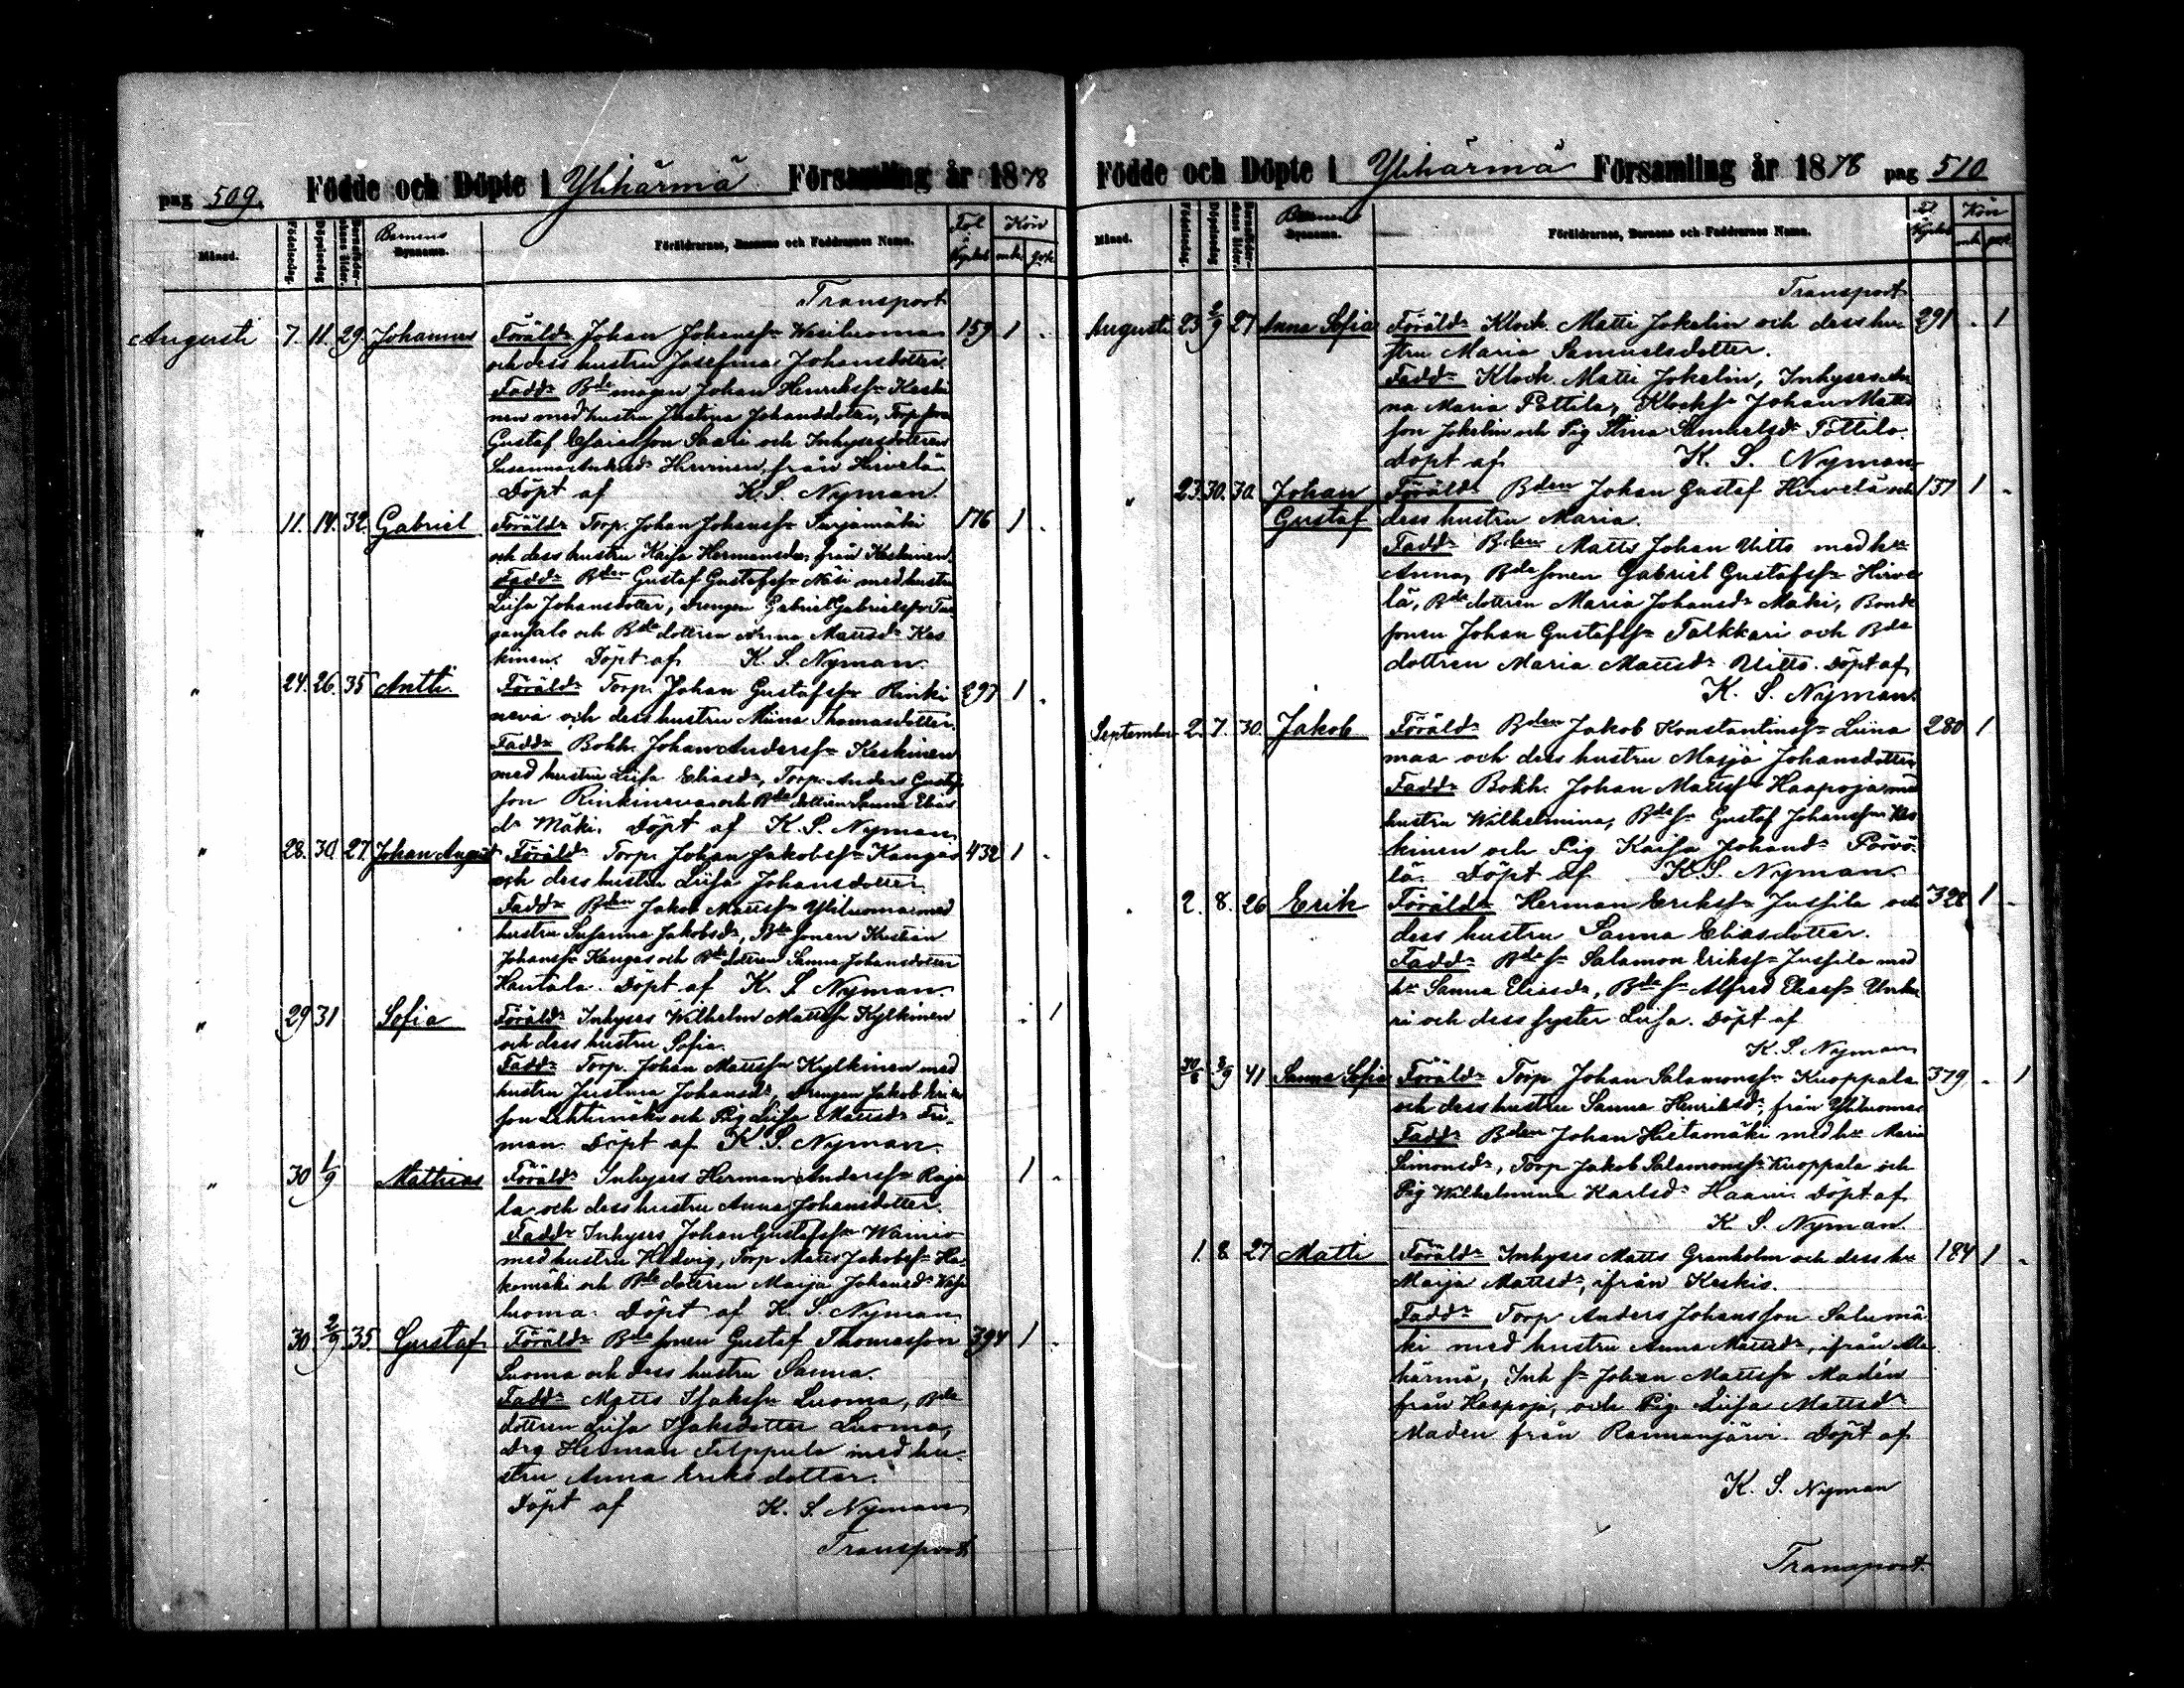 pag 509. Födde och Döpte i Ylihärmä Församling år 1878
Månad. Födelsedag. Döpelsedag Barnens Föräldrarnes, Barnens och Faddrarnes Namn. Kön
mk. qvk.
Transport
Augusti 7. 11. 29. Johannes Föräldr Johan Johansson Wesiluoma 159 1 .
och dess hustru Josefina Johansdotter.
Faddr Bde mågen Johan Henriksson Keski
nen med hustru Justina Johansdotter, Torp sonen
Gustaf Esaiasson Saari och Inhysesdottren
Susanna Andersdr Hirvinen från Hirvelä
Döpt af K. S. Nyman.
" 11. 14. 32. Gabriel Föräldr Torp. Johan Johansson Surjamäki 176 1 .
och dess hustru Kaisa Hermansdr från Keskinen.
Faddr Bden Gustaf Gustafsson Näsi med hustru
Liisa Johansdotter, Drengen Gabriel Gabrielsson
och Bde dottren Anna Mattsdr Kes
kinen. Döpt af K. S. Nyman.
" 24. 26. 35 Antti. Föräldr Torp. Johan Gustafsson Rinki 297 1 .
neva och dess hustru Miina Thomasdotter.
Faddr Bokh. Johan Andersson Keskinen
med hustru Liisa Eliasdr, Torp. Anders Gustaf
son Rinkineva och Bde dottren Sanna Elias
dr Mäki. Döpt af K. S. Nyman
" 28. 30. 27. Johan August Föräldr Torp. Johan Jakobsson Kangas 432 1 .
och dess hustru Liisa Johansdotter
Faddr Bden Jakob Mattsson Yliluoma med
hustru Susanna Jakobsdr, Bde sonen Kustaan
Johansson Kangas och Bde dottren Sanna Johansdotter
Hautala. Döpt af K. S. Nyman.
" 29 31 Sofia Föräldr Inhyses Wilhelm Mattsson Kylkinen . 1
och dess hustru Sofia.
Faddr Torp. Johan Mattsson Kylkinen med
hustru Justina Johansdr, Drengen Jakob
son Lehtimäki och Pig Liisa Mattsdr Fri-
man. Döpt af K. S. Nyman.
" 30 1/9 Mathias Föräldr Inhyses Herman Andersson Raja 1 .
la och dess hustru Anna Johansdotter.
Faddr Inhyses Johan Gustafsson Wainio
med hustru Hedvig, Torp Matts Jakobsson Ha-
komäki och Bde dottren Maija Johansdr Wesi
luoma. Döpt af K. S. Nyman
30. 2/9 35. Gustaf Föräldr Bde sonen Gustaf Thomasson 394 1 .
Luoma och dess hustru Sanna.
Faddr Matts Isaksson Luoma, Bde
dottren Liisa Isaksdotter Luoma,
Drg Herman Filppula med hu-
stru Anna Eriksdotter.
Döpt af K. S. Nyman
Transport
Födde och Döpte i Ylihärmä Församling år 1878 pag 510
Månad. Födelsedag. Döpelsedag Barnens Föräldrarnes, Barnens och Faddrarnes Namn. Kön
mk. qvk.
Transport
Augusti 23 2/9 27 Anna Sofia Föräldr Klock. Matti Jokelin och dess hu- 291 . 1
stru Maria Samuelsdotter.
Faddr Klock. Matti Jokelin, Inhyses An
na Maria Pottila, Klocks Johan Matts
son Jokelin och Pig Stina Samuelsdr Pottila.
Döpt af K. S. Nyman
" 23. 30. 30. Johan Föräldr Bden Johan Gustaf Hirvelä och 137 1 .
Gustaf dess hustru Maria.
Faddr Bden Matts Johan Uitto med hu
Anna, Bde sonen Gabriel Gustafsson Hirve
lä, Bde dottren Maria Johansdr Mäki, Bonde
sonen Johan Gustafsson Talkkari och Bde
dottren Maria Mattsdr Uitto. Döpt af
K. S. Nyman.
September 2. 7. 30. Jakob Föräldr Bden Jakob Konstantinsson Liina 280 1
maa och dess hustru Maija Johansdotter
Faddr Bokh. Johan Mattsson Haapoja med
hustru Wilhelmina, Bde sn Gustaf Johansson Kes
kinen och Pig Kaisa Johansdr Porvo-
la. Döpt af K. S. Nyman.
. 2. 8. 26 Erik Föräldr Herman Eriksson Jussila och 328 1 .
dess hustru Sanna Eliasdotter.
Faddr Bde sn Salamon Eriksson Jussila med
hu Sanna Eliasdr, Bde sn Alfred Eliasson Unku
ri och dess syster Liisa. Döpt af
K. S. Nyman
30/8 3/9 41 Sanna Sofia Föräldr Torp Johan Salamonsson Kuoppala 379 . 1
och dess hustru Sanna Henriksdr, från Yliluoma
Faddr Bden Johan Hietamäki med hu Maria
Simonsdr, Torp Jakob Salamonsson Kuoppala och
Pig Wilhelmina Karlsdr Haavi. Döpt af
K. S. Nyman.
1. 8 27 Matti Föräldr Inhyses Matts Granholm och dess hu 184 1 .
Maija Mattsdr, ifrån Keskis.
Faddr Torp Anders Johansson Salumä
ki med hustru Anna Mattsdr, ifrån Ala
härmä, Inh sn Johan Mattsson Madén
från Haapoja, och Pig Liisa Mattsdr
Madén från Rannanjärvi. Döpt af
K. S. Nyman
Transport